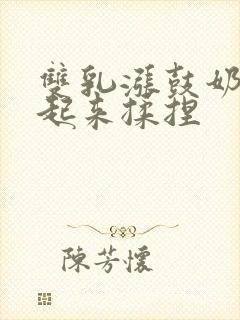 雙乳漲鼓奶
起來揉捏
陳芳懷